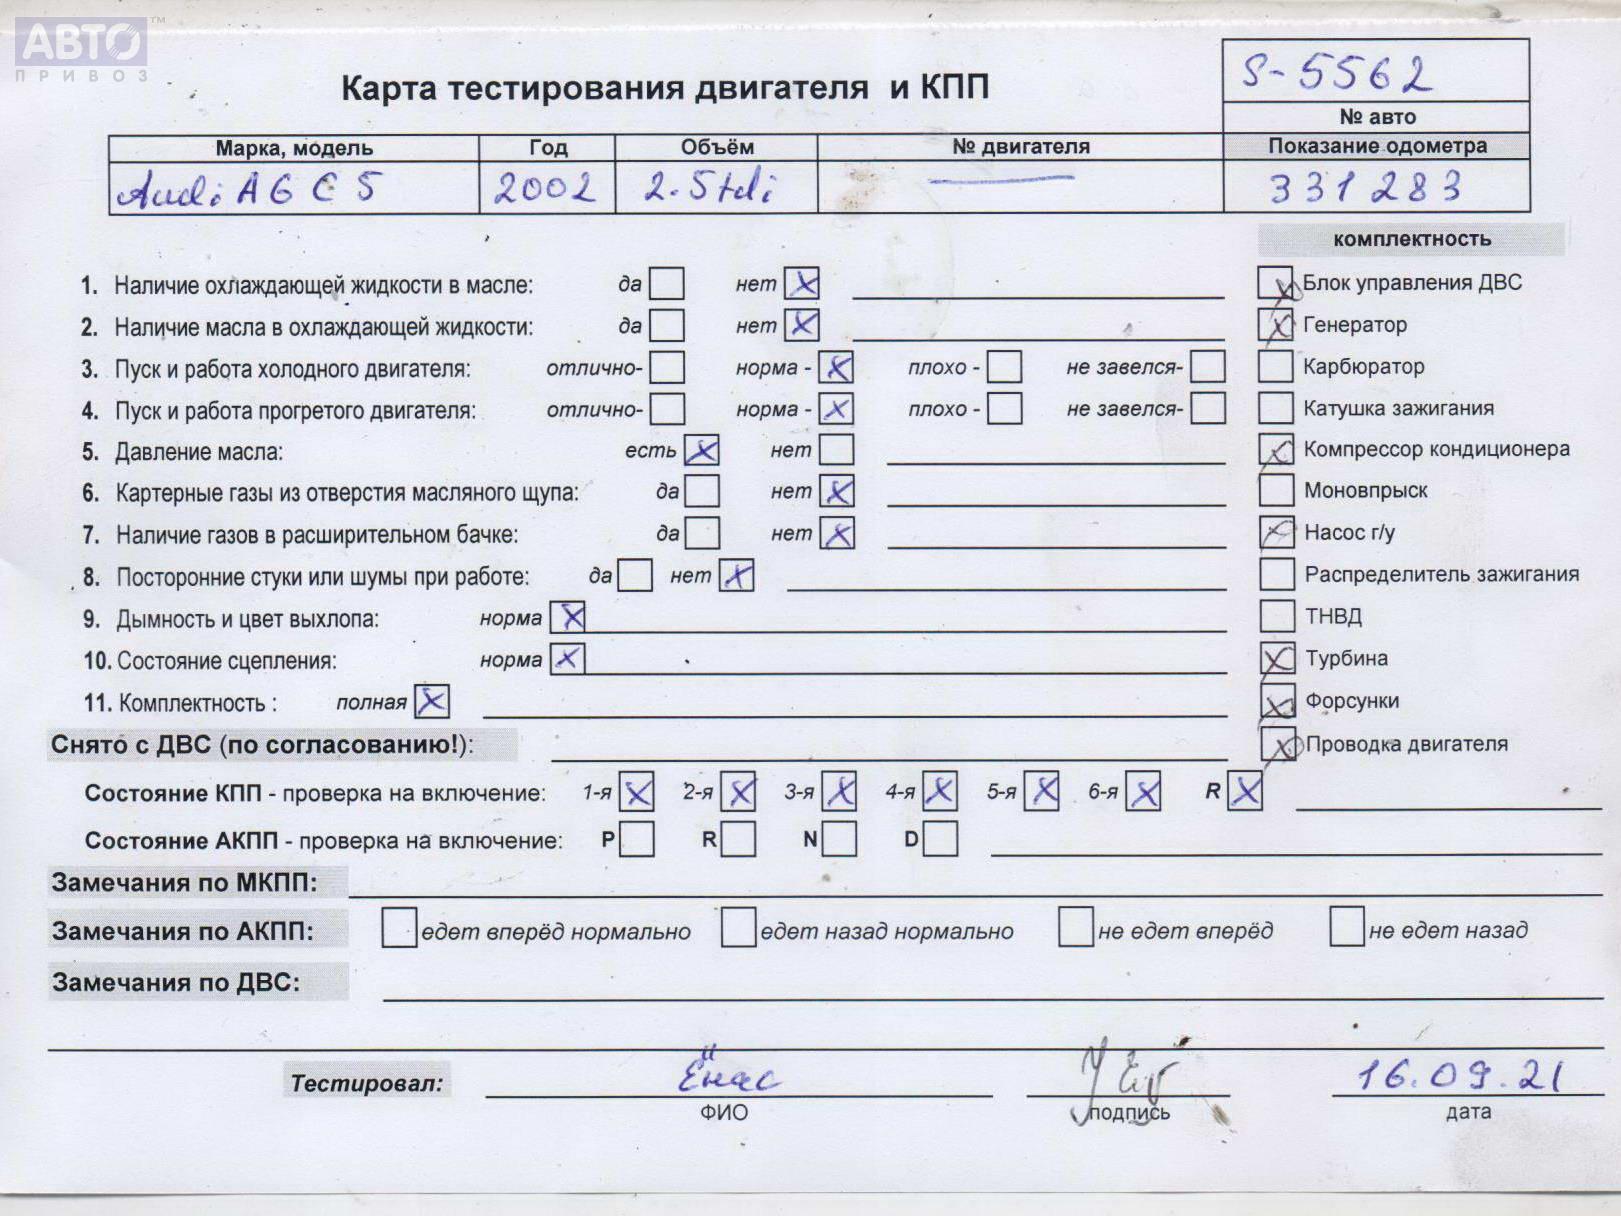 АВТО™
ПРИВОЗ
S-5562
Карта тестирования двигателя и КПП
№ авто
Марка, модель Год Объём № двигателя Показание одометра
Audi A6 C5 2002 2.5tdi 331283
комплектность
1. Наличие охлаждающей жидкости в масле: да нет X Блок управления ДВС
2. Наличие масла в охлаждающей жидкости: да нет X Генератор
3. Пуск и работа холодного двигателя: отлично- норма - X плохо - не завелся- Карбюратор
4. Пуск и работа прогретого двигателя: отлично- норма - X плохо - не завелся- Катушка зажигания
5. Давление масла: есть X нет Компрессор кондиционера
6. Картерные газы из отверстия масляного щупа: да нет X Моновпрыск
7. Наличие газов в расширительном бачке: да нет X Насос г/у
8. Посторонние стуки или шумы при работе: да нет X Распределитель зажигания
9. Дымность и цвет выхлопа: норма X ТНВД
10. Состояние сцепления: норма X Турбина
11. Комплектность : полная X Форсунки
Снято с ДВС (по согласованию!): Проводка двигателя
Состояние КПП - проверка на включение: 1-я X 2-я X 3-я X 4-я X 5-я X 6-я X R X
Состояние АКПП - проверка на включение: P R N D
Замечания по МКПП:
Замечания по АКПП: едет вперёд нормально едет назад нормально не едет вперёд не едет назад
Замечания по ДВС:
Тестировал: Ёнас 16.09.21
ФИО подпись дата